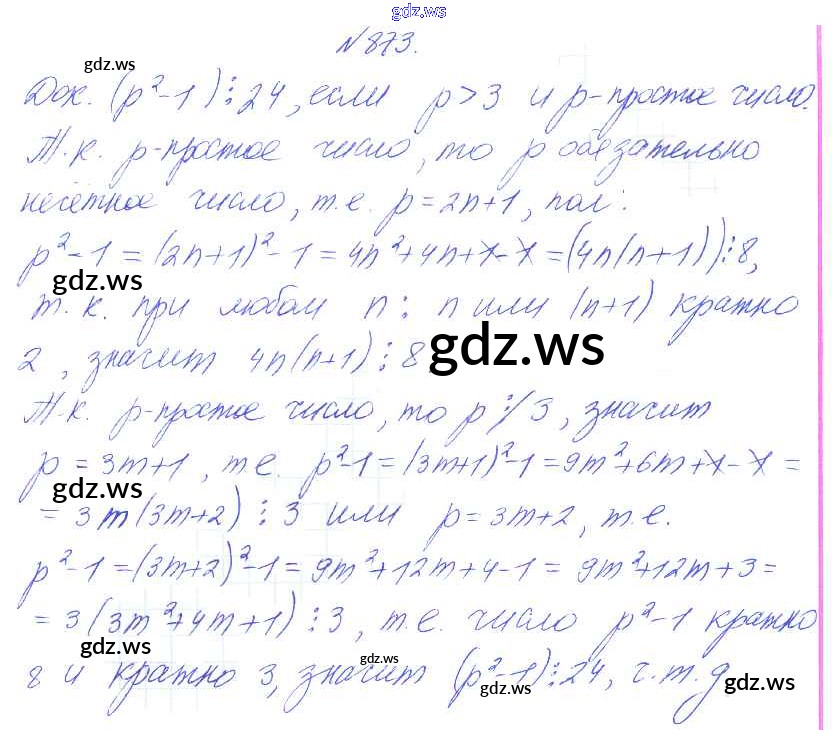 gdz.ws
N 873.
gdz.ws
Док. (p²-1)⋮24, если p>3 и p-простое число.
Т.к. p-простое число, то p обязательно
нечётное число, т.е. p=2n+1, пол:
p²-1=(2n+1)²-1=4n²+4n+1-1=(4n(n+1))⋮8,
gdz.ws
т.к. при любом n: n или (n+1) кратно
2, значит 4n(n+1)⋮8
gdz.ws
Т.к. p-простое число, то p⋮̸3, значит
p=3m+1, т.е. p²-1=(3m+1)²-1=9m²+6m+1-1=
gdz.ws
=3m(3m+2)⋮3 или p=3m+2, т.е.
p²-1=(3m+2)²-1=9m²+12m+4-1=9m²+12m+3=
=3(3m²+4m+1)⋮3, т.е. число p²-1 кратно
gdz.ws
gdz.ws
8 и кратно 3, значит (p²-1)⋮24, ч.т.д
gdz.ws
gdz.ws